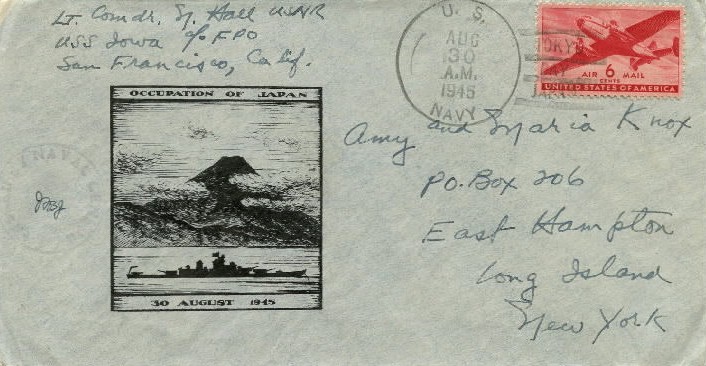 Lt. Comdr. M. Hall USNR
USS Iowa c/o FPO
San Francisco, Calif.
U. S.
AUG
30
A.M.
1945
NAVY
TOKYO
AIR 6 MAIL
CENTS
UNITED STATES OF AMERICA
OCCUPATION OF JAPAN
30 AUGUST 1945
NAVAL
Amy and Maria Knox
P.O. Box 206
East Hampton
Long Island
New York